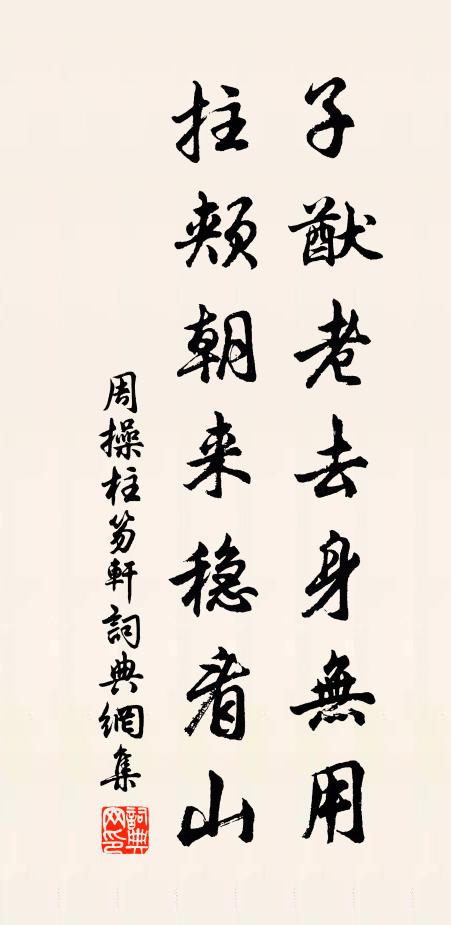 子猷老去身無用
拄颊朝来稳看山
周操柱笏軒詞典網集
詞典網印